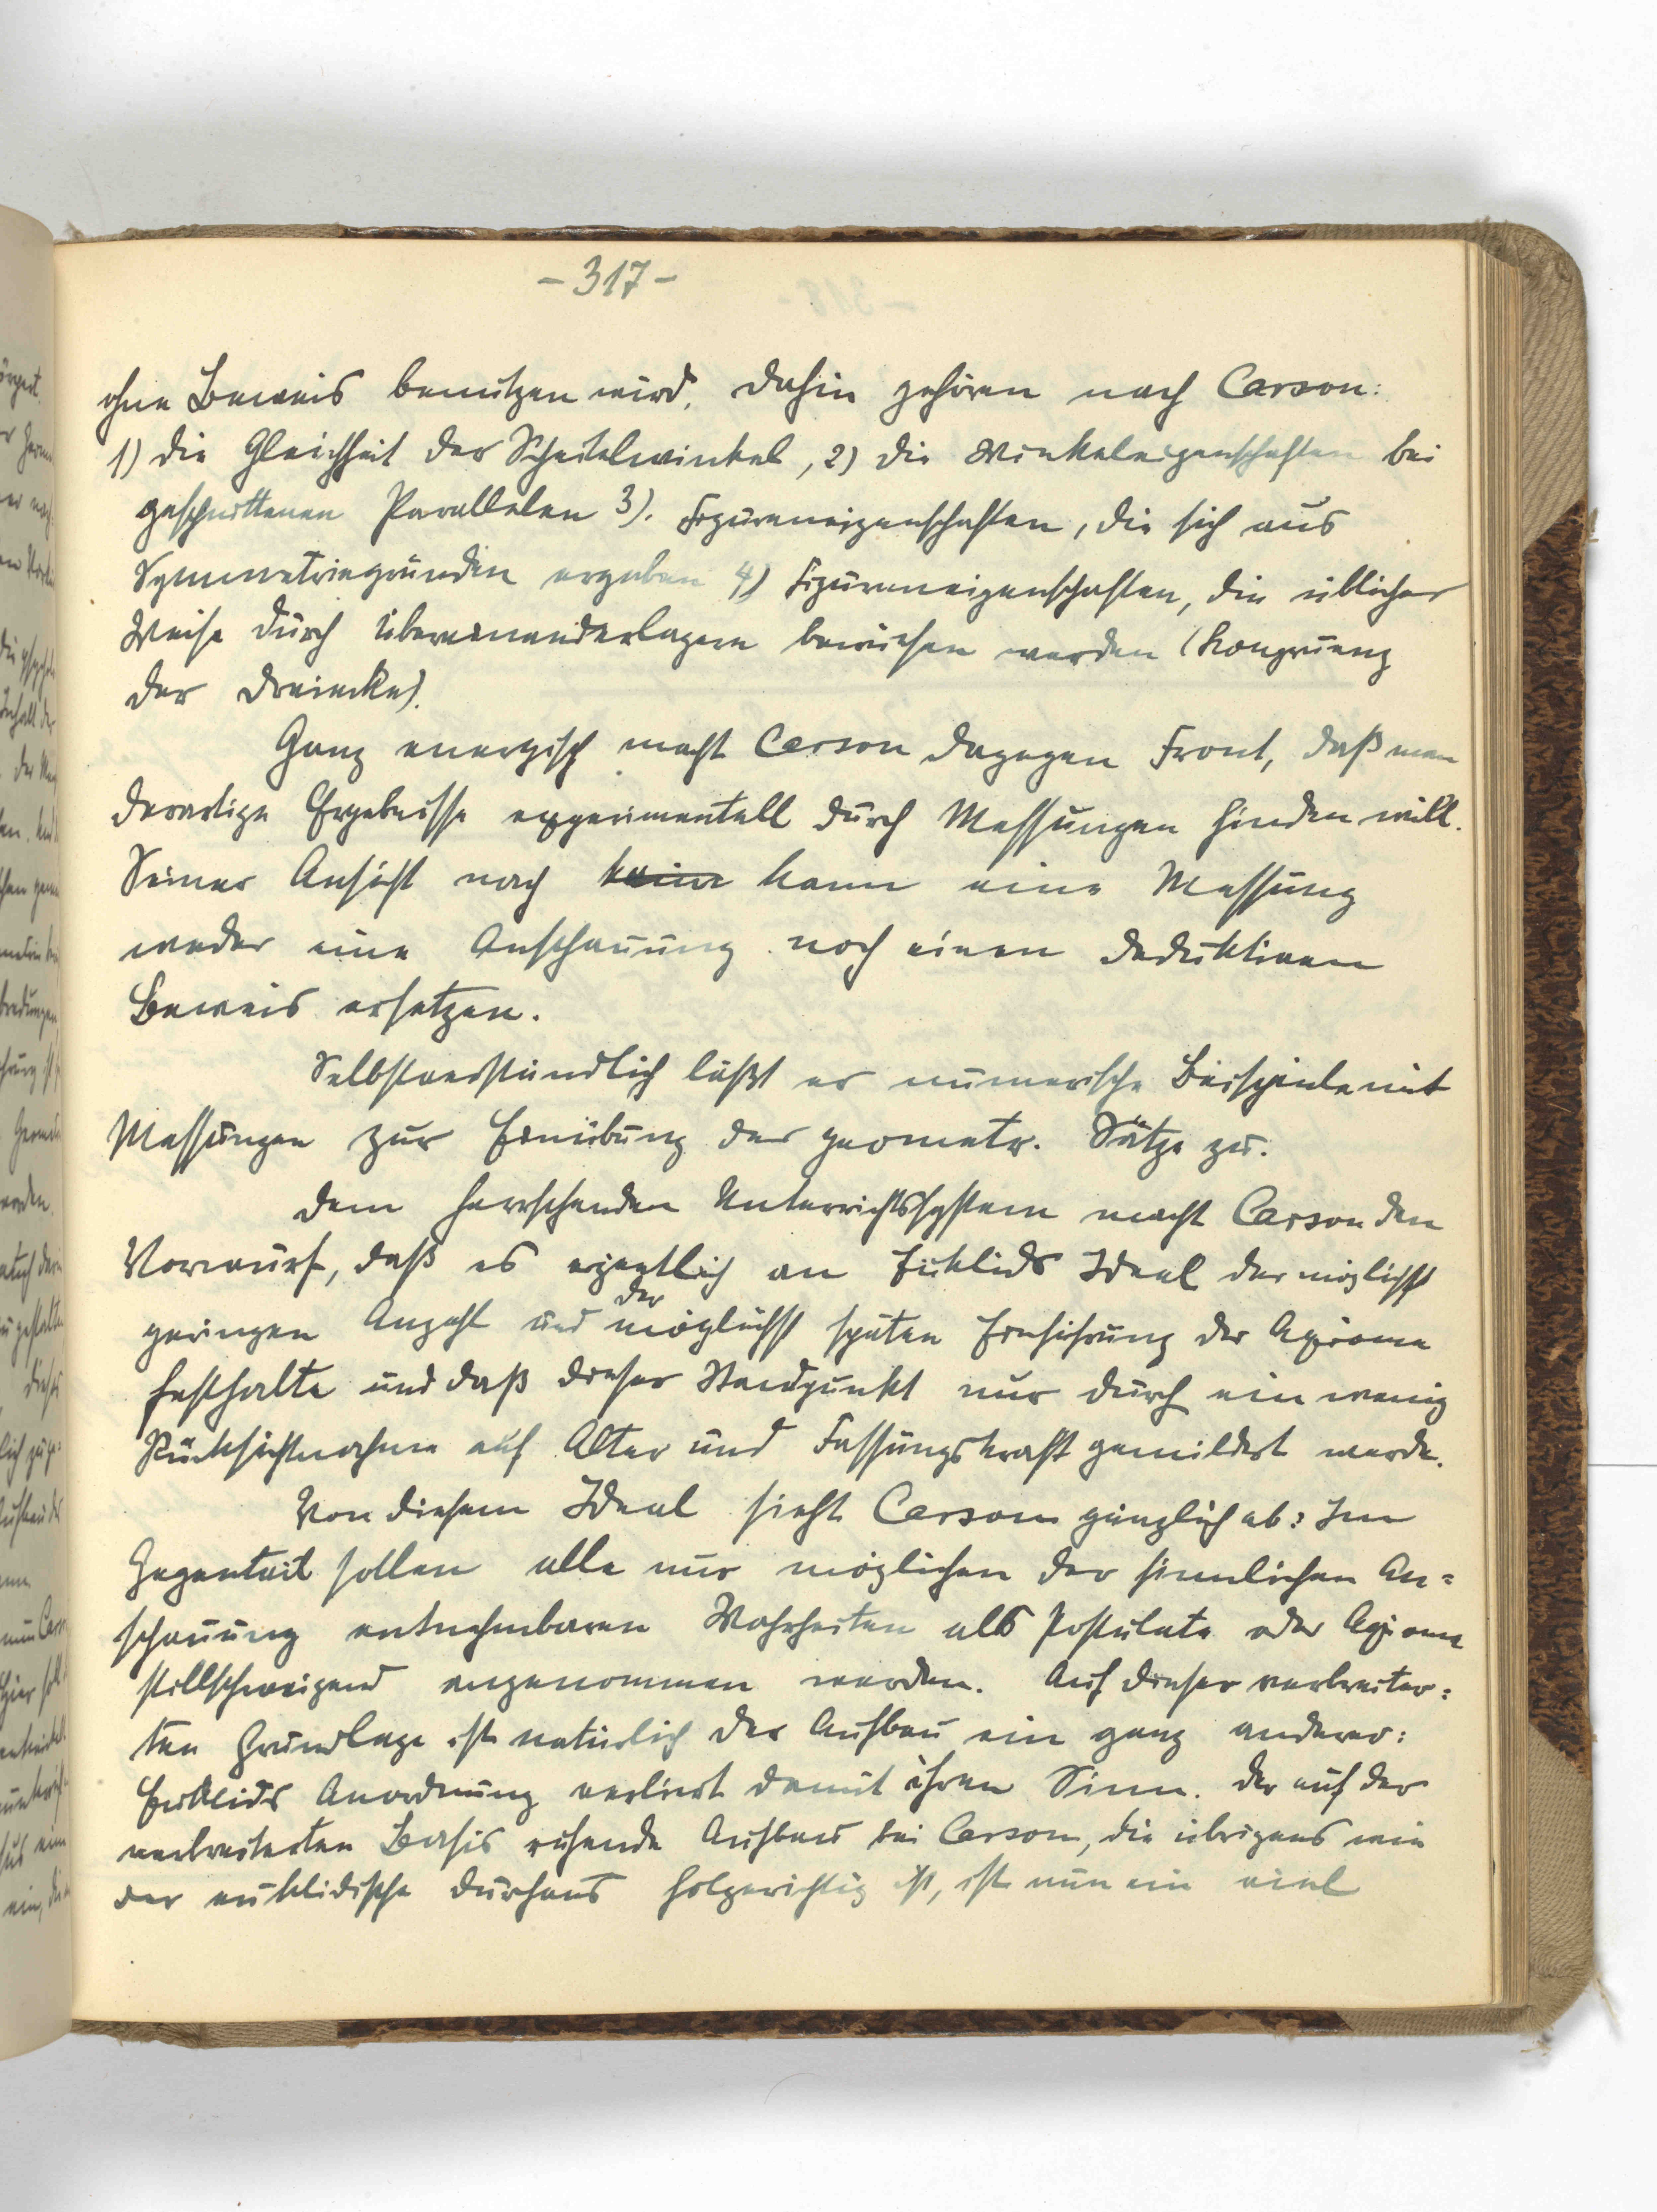 - 317 -
ohne Beweis benutzen wird. Dahin gehören nach Carson:
1) die Gleichheit der Scheitelwinkel, 2) die Winkeleigenschaften bei
geschnittenen Parallelen 3). Figureneigenschaften, die sich aus
Symmetriegründen ergeben 4) Figureneigenschaften, die üblicher
Weise durch Übereinanderlagern bewiesen werden (Kongruenz
der Dreiecke).
Ganz energisch macht Carson dagegen Front, daß man
derartige Ergebnisse experimentell durch Messungen finden will.
Seiner Ansicht nach keine kann eine Messung
weder eine Anschauung noch einen deduktiven
Beweis ersetzen.
Selbstverständlich läßt er numerische Beispiele mit
Messungen zur Einübung der geometr. Sätze zu.
Dem herrschenden Unterrichtssystem macht Carson den
Vorwurf, daß es eigentlich an Euklids Ideal der möglichst
geringen Anzahl und der möglichst späten Einführung der Axiome
festhalte und daß dieser Standpunkt nur durch ein wenig
Rücksichtnahme auf Alter und Fassungskraft gemildert werde.
Von diesem Ideal sieht Carson gänzlich ab: Im
Gegenteil sollen alle nur möglichen der sinnlichen An=
schauung entnehmbaren Wahrheiten als Postulate oder Axiome
stillschweigend angenommen werden. Auf dieser verbreiter=
ten Grundlage ist natürlich der Aufbau ein ganz anderer:
Euklids Anordnung verliert damit ihren Sinn. Der auf der
verbreiterten Basis ruhende Aufbau bei Carson, die übrigens wie
der euklidische durchaus folgerichtig ist, ist nun ein viel